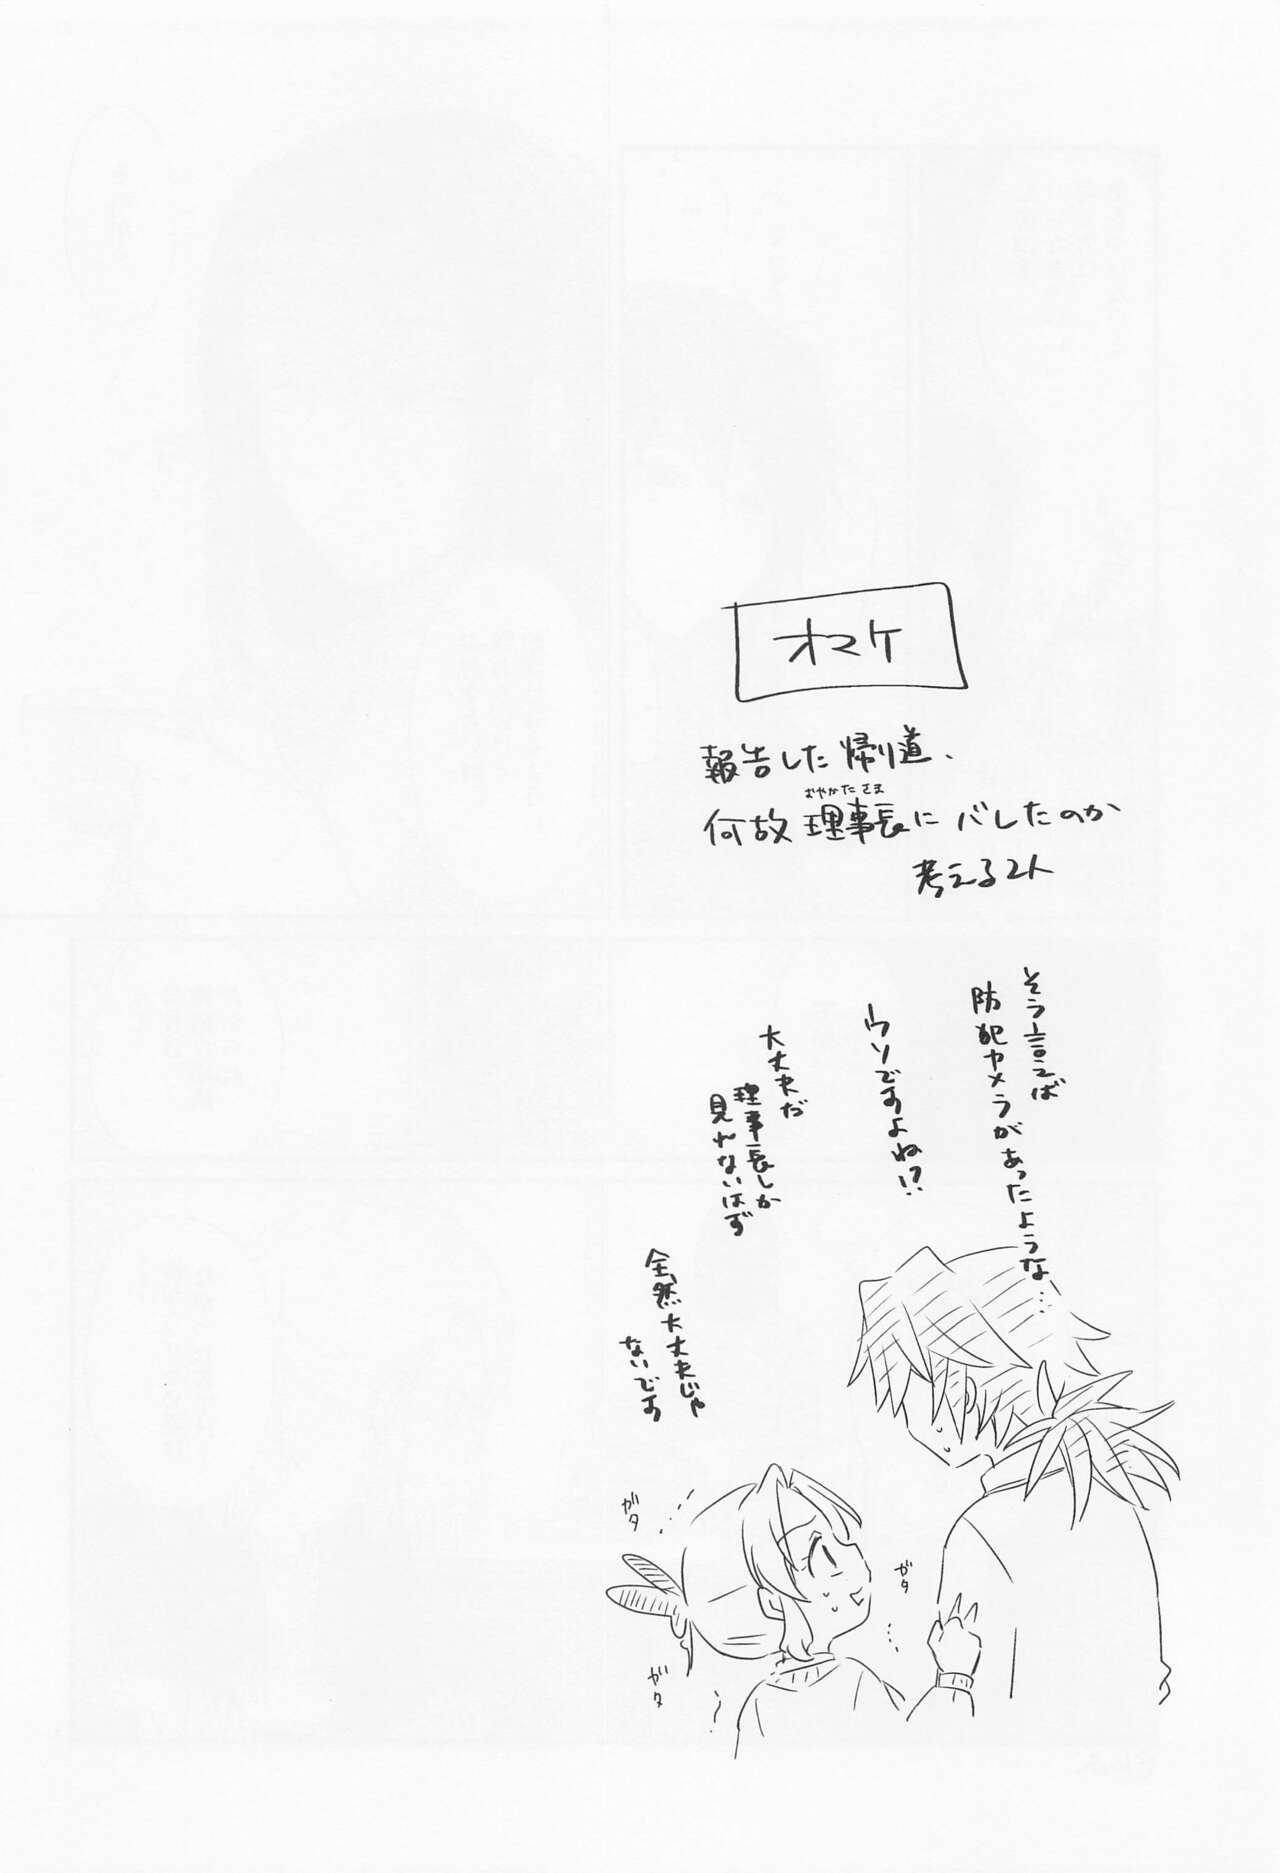 オマケ
報告した帰り道、
おやかたさま
何故理事長にバレたのか
考える2人
そう言えば
防犯カメラがあったような…
ウソですよね!?
大丈夫だ
理事長しか
見れないはず
全然大丈夫じゃ
ないです
ガタ
ガタ
ガタ